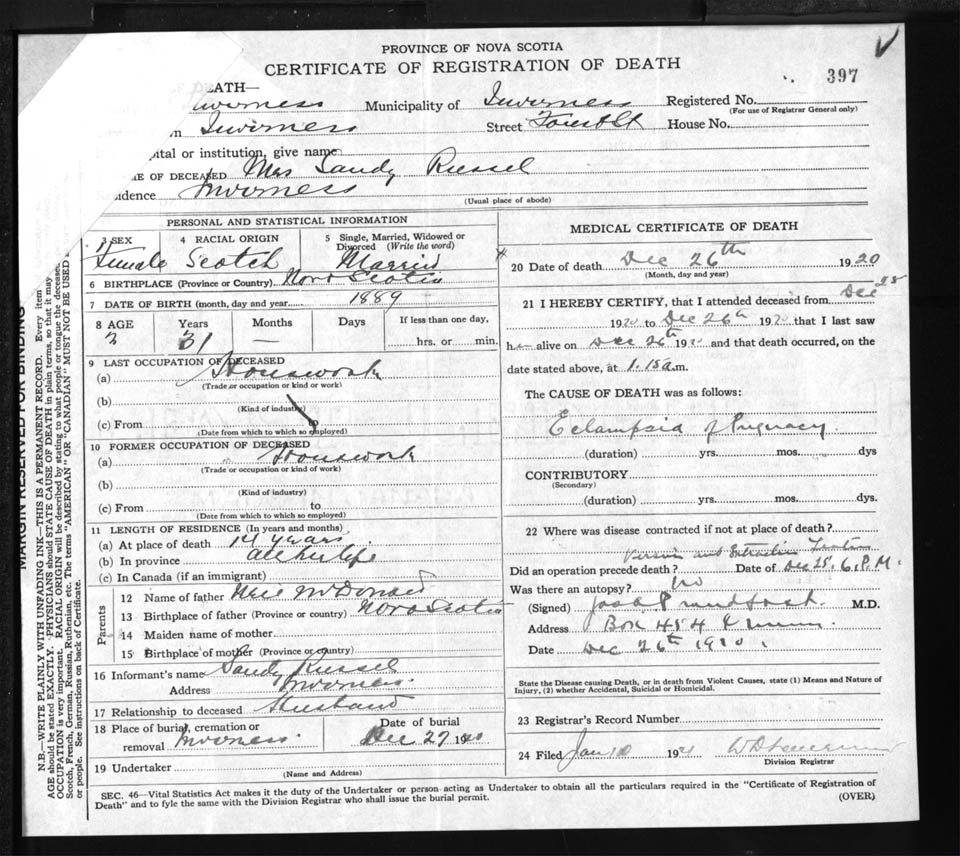 PROVINCE OF NOVA SCOTIA
CERTIFICATE OF REGISTRATION OF DEATH
397
EATH—
Inverness Municipality of Inverness Registered No.
(For use of Registrar General only)
n Inverness Street Forest St House No.
pital or institution, give name
E OF DECEASED Mrs Sandy Russel
idence Inverness
(Usual place of abode)
PERSONAL AND STATISTICAL INFORMATION
3 SEX 4 RACIAL ORIGIN 5 Single, Married, Widowed or Divorced (Write the word)
Female Scotch Married
6 BIRTHPLACE (Province or Country) Nova Scotia
7 DATE OF BIRTH (month, day and year) 1889
8 AGE Years Months Days If less than one day,
31 — hrs. or min.
9 LAST OCCUPATION OF DECEASED
(a) Housework
(Trade or occupation or kind or work)
(b)
(Kind of industry)
(c) From
(Date from which to which so employed)
10 FORMER OCCUPATION OF DECEASED
(a) Housework
(Trade or occupation or kind of work)
(b)
(Kind of industry)
(c) From to
(Date from which to which so employed)
11 LENGTH OF RESIDENCE (In years and months)
(a) At place of death 14 years
(b) In province all her life
(c) In Canada (if an immigrant)
Parents
12 Name of father McDonald
13 Birthplace of father (Province or country) Nova Scotia
14 Maiden name of mother
15 Birthplace of mother (Province or country)
16 Informant's name Sandy Russel
Address Inverness
17 Relationship to deceased Husband
18 Place of burial, cremation or removal Inverness. Date of burial Dec 27 1920
19 Undertaker
(Name and Address)
MEDICAL CERTIFICATE OF DEATH
20 Date of death Dec 26th 1920
(Month, day and year)
21 I HEREBY CERTIFY, that I attended deceased from Dec 25
1920 to Dec 26th 1920 that I last saw
h alive on Dec 26th 1920 and that death occurred, on the
date stated above, at 1.15 a.m.
The CAUSE OF DEATH was as follows:
Eclampsia of Pregnacy
(duration) yrs. mos. dys
CONTRIBUTORY
(Secondary)
(duration) yrs. mos. dys.
22 Where was disease contracted if not at place of death?
Version and Extraction
Did an operation precede death? Date of Dec 25. 6 P.M.
Was there an autopsy? no
(Signed) M.D.
Address Box 454
Date Dec 26th 1920.
State the Disease causing Death, or in death from Violent Causes, state (1) Means and Nature of
Injury, (2) whether Accidental, Suicidal or Homicidal.
23 Registrar's Record Number
24 Filed Jan 10 1921
Division Registrar
SEC. 46—Vital Statistics Act makes it the duty of the Undertaker or person acting as Undertaker to obtain all the particulars required in the "Certificate of Registration of
Death" and to fyle the same with the Division Registrar who shall issue the burial permit. (OVER)
MARGIN RESERVED FOR BINDING
N.B.—WRITE PLAINLY WITH UNFADING INK—THIS IS A PERMANENT RECORD. Every item
AGE should be stated EXACTLY. PHYSICIANS should STATE CAUSE OF DEATH in plain terms, so that it may
OCCUPATION is very important. RACIAL ORIGIN will be described by stating to what people or tongue the deceased
Scotch, French, German, Russian, Ruthenian, etc. The terms "AMERICAN" OR "CANADIAN" MUST NOT BE USED
or people. See instructions on back of Certificate.